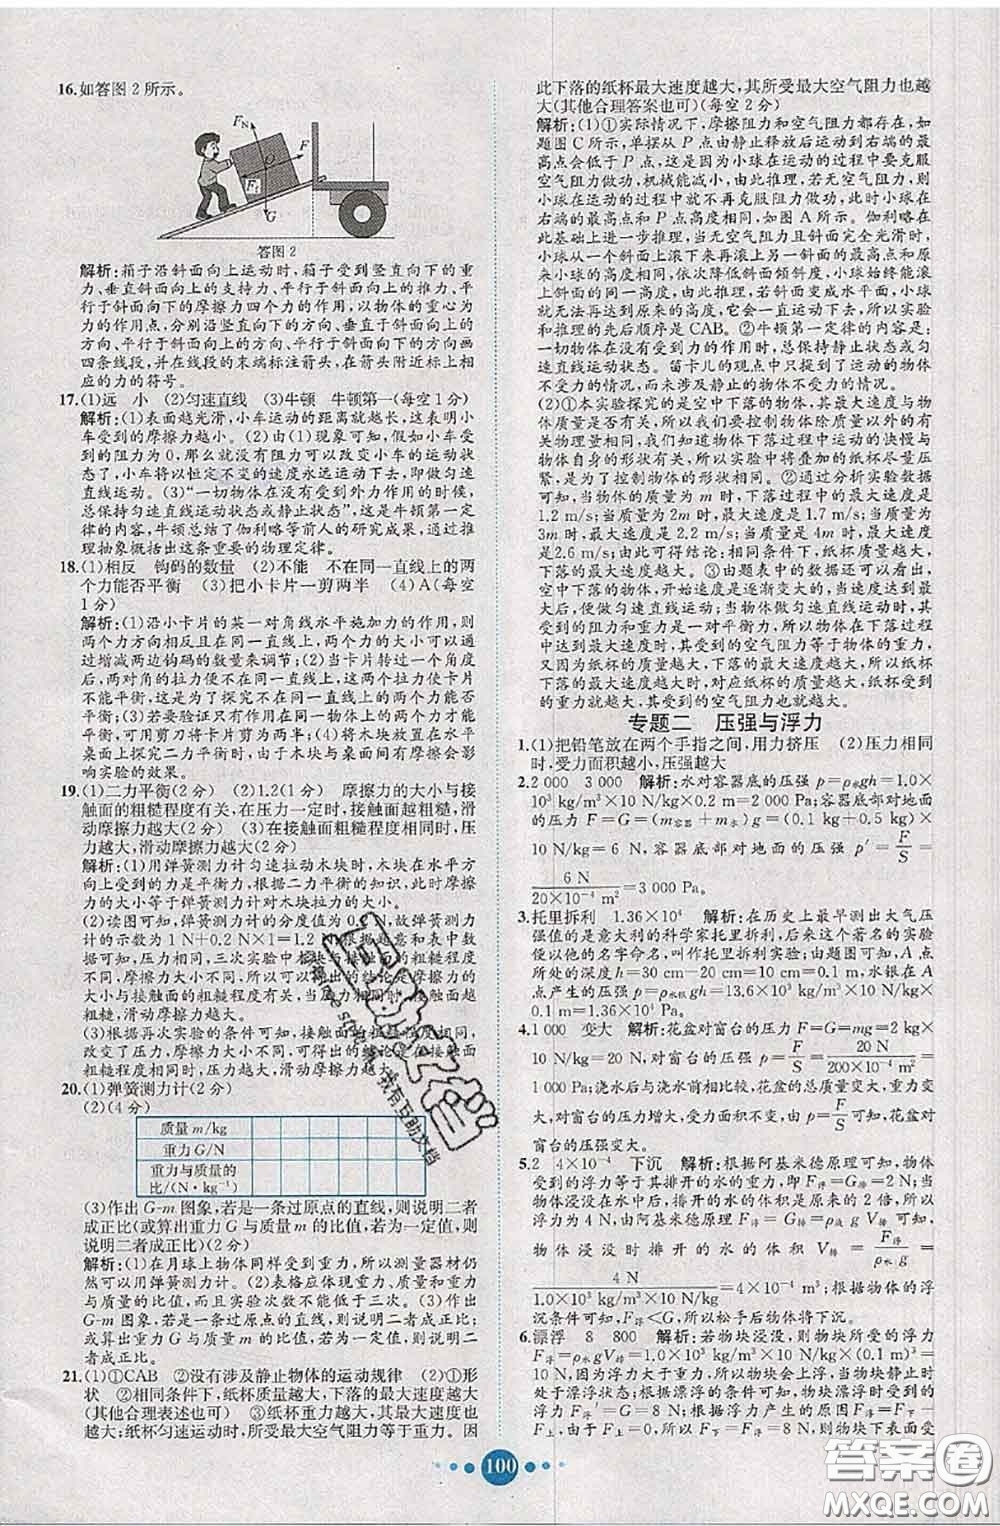 16.如答图2所示。
F_N
F
O
F_f
G
答图2
解析:箱子沿斜面向上运动时,箱子受到竖直向下的重
力、垂直斜面向上的支持力、平行于斜面向上的推力、平
行于斜面向下的摩擦力四个力的作用,以物体的重心为
力的作用点,分别沿竖直向下的方向、垂直于斜面向上的
方向、平行于斜面向上的方向、平行于斜面向下的方向画
四条线段,并在线段的末端标注箭头,在箭头附近标上相
应的力的符号。
17.(1)远 小 (2)匀速直线 (3)牛顿 牛顿第一(每空1分)
解析:(1)表面越光滑,小车运动的距离就越长,这表明小
车受到的摩擦力越小。(2)由(1)现象可知,假如小车受
到的阻力为0,那么就没有阻力可以改变小车的运动状
态了,小车将以恒定不变的速度永远运动下去,即做匀速
直线运动。(3)“一切物体在没有受到外力作用的时候,
总保持匀速直线运动状态或静止状态”,这是牛顿第一定
律的内容,牛顿总结了伽利略等前人的研究成果,通过推
理抽象概括出这条重要的物理定律。
18.(1)相反 钩码的数量 (2)不能 不在同一直线上的两
个力能否平衡 (3)把小卡片一剪两半 (4)A(每空
1分)
解析:(1)沿小卡片的某一对角线水平施加力的作用,则
两个力方向相反且在同一直线上;两个力的大小可以通
过增减两边钩码的数量来调节;(2)当卡片转过一些时,
两对角的拉力便不在同一直线上了,两边拉力使卡片不
能平衡,这是为了探究不在同一直线上的两个力能否
平衡;(3)若要验证只有作用在同一物体上的两个力才能
平衡,可用剪刀将卡片分开即可;(4)将木块放置在水平
桌面上探究二力平衡时,由于木块与桌面间有摩擦会影
响实验效果。
19.(1)二力平衡(2分) (2)1.2(1分) 摩擦力的大小与接
触面的粗糙程度有关,在压力一定时,接触面越粗糙,滑
动摩擦力越大(2分) (3)在接触面粗糙程度相同时,压
力越大,滑动摩擦力越大(2分)
解析:(1)用弹簧测力计匀速拉动木块时,木块在水平方
向上受到的力是平衡力,根据二力平衡的知识,此时摩擦
力的大小等于弹簧测力计对木块拉力的大小。
(3)根据再次实验的条件可知,接触面粗糙程度相同,
改变了压力的大小,所以可以得出的结论是:在接触面粗
糙程度相同时,压力越大,滑动摩擦力越大。
20.(1)弹簧测力计(2分)
(2)(4分)
质量m/kg
重力G/N
重力与质量的
比/(N·kg⁻¹)
(3)作出G-m图象,若是一条过原点的直线,则说明二者
成正比(或算出重力G与质量m的比值,若为一定值,则
说明二者成正比)(2分)
解析:(1)在月球上物体同样受到重力,所以测量器材仍
然可以用弹簧测力计。(2)表格应体现重力、质量及重力
与质量的比值,而且实验次数不能低于三次。(3)作出
G-m图象,若是一条过原点的直线,则说明二者成正比;
或算出重力G与质量m的比值,若为一定值,则说明二
者成正比。
21.(1)①CAB ②没有涉及静止物体的运动规律 (2)①形
状 ②相同条件下,纸杯质量越大,下落的最大速度越大
(其他合理表述也可) ③纸杯重力越大,其最大速度越
大;纸杯匀速运动时,所受最大空气阻力等于重力。因
此下落的纸杯最大速度越大,其所受最大空气阻力也越
大(其他合理答案也可)(每空2分)
解析:(1)①实际情况下,摩擦阻力和空气阻力都存在,如
题图C所示,单摆从P点由静止释放后运动到右端的最
高点会低于P点,这是因为小球在运动的过程中要克服
空气阻力做功,机械能减小,由此推理,若无空气阻力,则
小球在运动过程中就不再克服阻力做功,此时小球在
右端的最高点和P点高度相同,如图A所示。伽利略由
此推理认为:当无空气阻力且斜面完全光滑时,小球从斜
面上滚下来后再滚上另一斜面的最高点,其两侧的高度
应该是一样的。依次减小倾斜斜面的倾斜角度,都会达到
斜面的同一高度,若将斜面改变成水平面,小球由于
无法达到原来的高度,它会一直运动下去,因此实验
和推理的先后顺序是CAB。②牛顿第一定律的内容是:
一切物体在没有受到力的作用时,总保持静止状态或匀
速直线运动状态。笛卡儿的观点中只提到了运动的物体
不受力的情况,而未涉及静止的物体不受力的情况。
(2)①本实验探究的是空中下落物体的最大速度与物体
质量是否有关,所以我们要控制物体除质量以外的有关
物理量相同。我们知道物体下落过程中运动的快慢与
物体自身的形状有关,所以实验中将选用的纸杯尽量压
紧,是为了控制物体的形状相同。②通过分析实验数据
可知,当物体的质量为m时,下落过程中的最大速度是
1.2 m/s;当质量为2m时,最大速度是1.7 m/s;当质量
为3m时,最大速度是2.2 m/s;当质量为4m时,最大速
度是2.6 m/s;由此可得结论:相同条件下,质量越大,
下落的最大速度越大。③由题表中的数据还可以看出,
空中下落的物体,开始速度是逐渐变大的,当达到最大速
度后,便做匀速直线运动,当物体做匀速直线运动时,其
受到的阻力和重力是一对平衡力,所以物体的质量越大,
其受到的重力越大,其受到的空气阻力等于物体的重力,
又因为纸杯质量越大,下落的最大速度越大,所以下落过
程中纸杯的速度越大时,对应纸杯的质量越大,受到的
重力就越大,其受到的空气阻力就越大。
专题二 压强与浮力
1.(1)把铅笔放在两个手指之间,用力挤压 (2)压力相同
时,受力面积越小,压强越大
2.2 000 3 000 解析:水对容器底的压强p=ρ水gh=1.0×
10³ kg/m³×10 N/kg×0.2 m=2 000 Pa。容器底部对地面
的压力F=G=(m容器+m水)g=(0.1 kg+0.5 kg)×
10 N/kg=6 N,容器底部对地面的压强p′=F/S=
6 N/(20×10⁻⁴ m²)=3 000 Pa。
3.托里拆利 1.36×10⁴ 解析:在历史上最早测出大气压
强值的是意大利的科学家托里拆利,后来这个著名的实验
便以他的名字命名,叫作托里拆利实验;由题图可知,A点
所处的深度h=30 cm-20 cm=10 cm=0.1 m,水银在A
点产生的压强p=ρ水银gh=13.6×10³ kg/m³×10 N/kg×
0.1 m=1.36×10⁴ Pa。
4.1 000 变大 解析:花盆对窗台的压力F=G=mg=2 kg
×10 N/kg=20 N,对窗台的压强p=F/S=20 N/(200×10⁻⁴ m²)=
1 000 Pa;浇水后与浇水前相比,花盆的总质量变大,重力变
大,对窗台的压力增大,受力面积不变,由p=F/S可知,花盆对
窗台的压强变大。
5.2 4×10⁻⁴ 下沉 解析:根据阿基米德原理可知,物体
受到的浮力等于排开的水的重力,所以F浮=G排=2 N。当
物体浸没在水中后,排开的水的体积是原来的2倍,所以
浮力为4 N,由阿基米德原理F浮=G排=ρ液gV排可知,
物体浸没时排开的水的体积V排=F浮/(ρ水g)=
4 N/(1.0×10³ kg/m³×10 N/kg)=4×10⁻⁴ m³;根据物体的浮
沉条件可知,F浮<G,所以松手后物体将下沉。
6.漂浮 8 800 解析:若物块浸没,则物块所受的浮力
100
答案圈
MXQE.COM